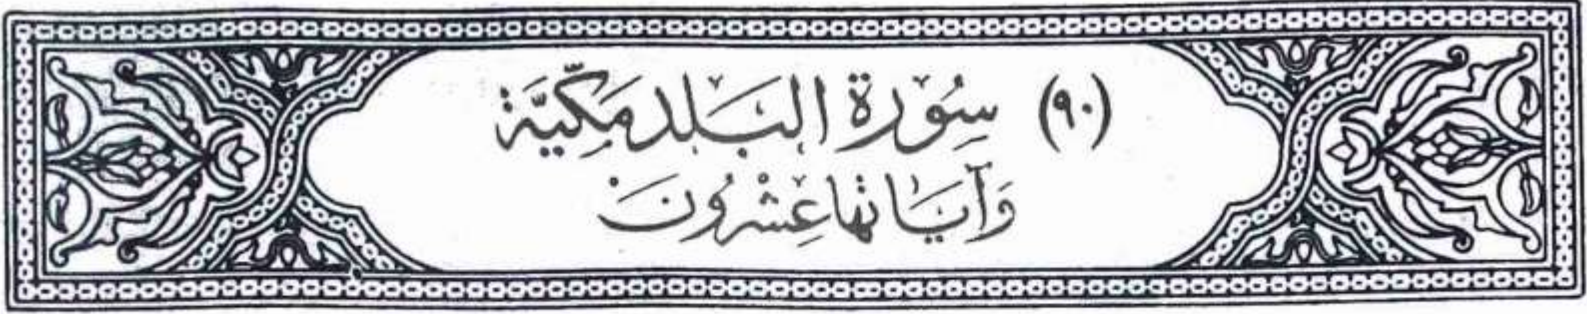 (٩٠) سُورَة البَلَد مَكِّيَّة
وَآيَاتها عِشْرُونَ